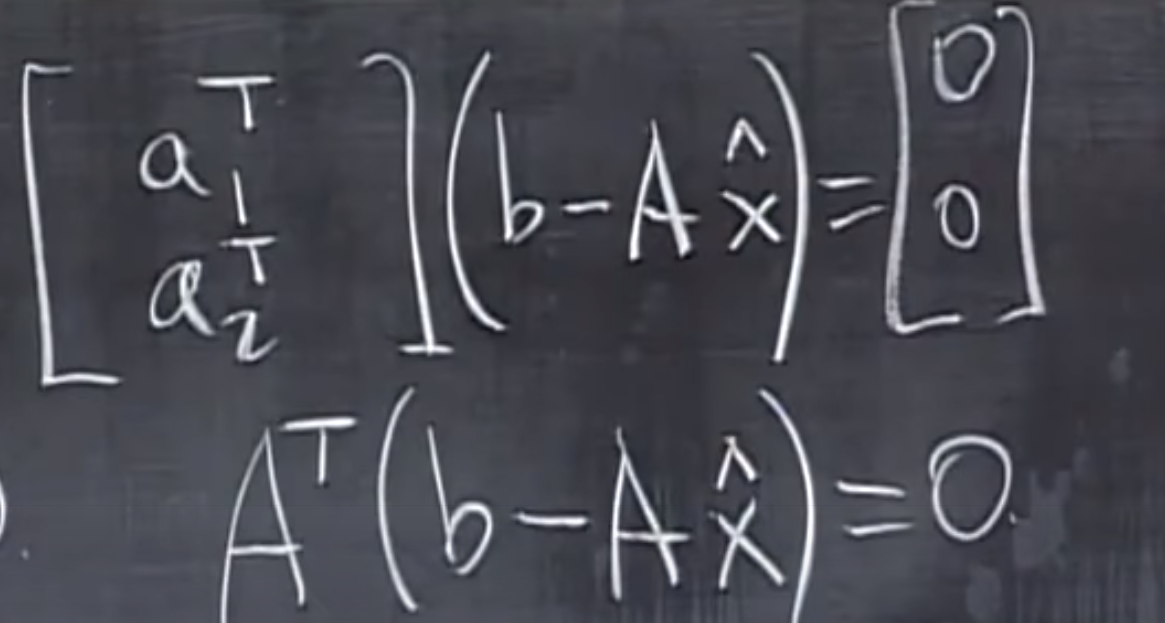 [a₁ᵀ
a₂ᵀ] (b - Ax̂) = [0
0]
Aᵀ(b - Ax̂) = 0